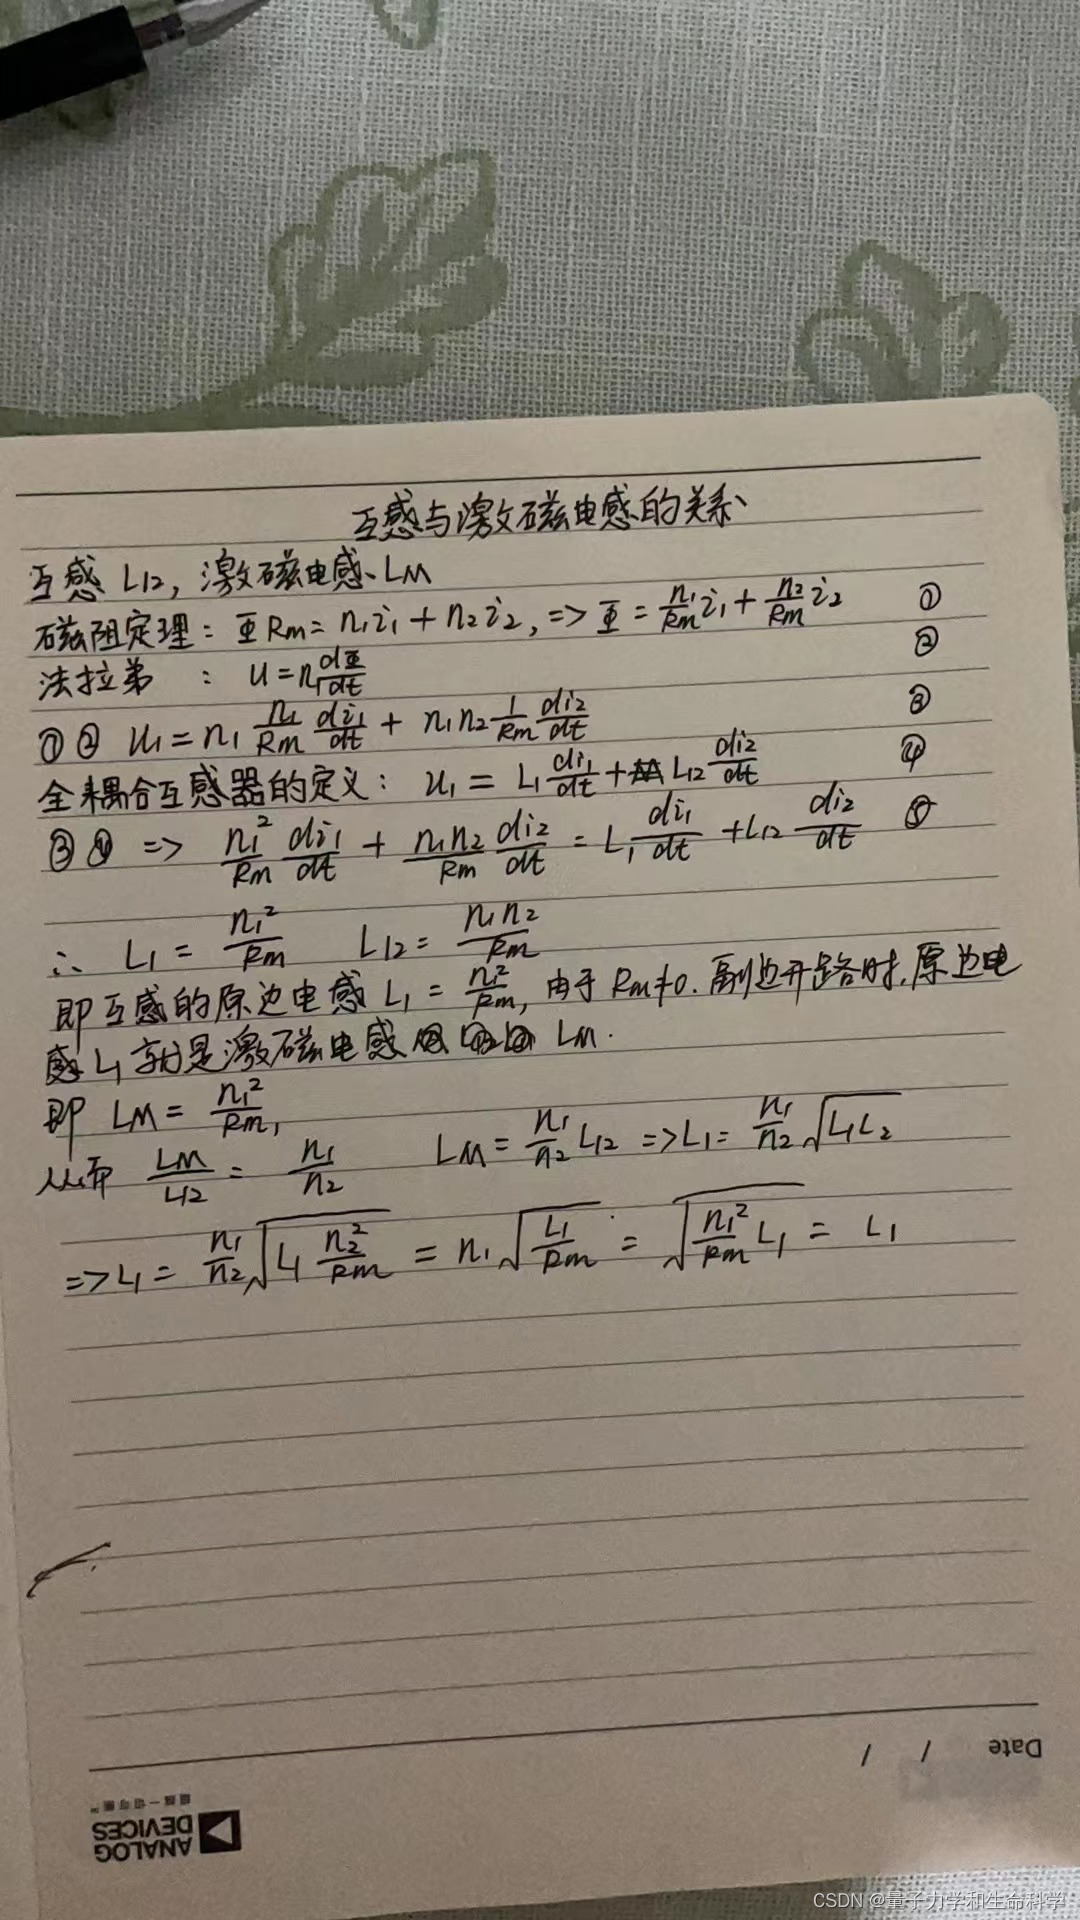 互感与激磁电感的关系
互感 L12, 激磁电感 LM
磁阻定理: ΦRm = n1i1 + n2i2, => Φ = n1/Rm i1 + n2/Rm i2 ①
法拉弟 : u = n dΦ/dt ②
①② u1 = n1 n1/Rm di1/dt + n1n2 1/Rm di2/dt ③
全耦合互感器的定义: u1 = L1 di1/dt + L12 di2/dt ④
③④ => n1²/Rm di1/dt + n1n2/Rm di2/dt = L1 di1/dt + L12 di2/dt ⑤
∴ L1 = n1²/Rm L12 = n1n2/Rm
即互感的原边电感 L1 = n1²/Rm, 由于 Rm≠0. 副边开路时, 原边电
感 L1 就是激磁电感 LM.
即 LM = n1²/Rm,
从而 LM/L12 = n1/n2 LM = n1/n2 L12 => L1 = n1/n2 √(L1L2)
=> L1 = n1/n2 √(L1 n2²/Rm) = n1 √(L1/Rm) = √(n1²/Rm L1) = L1
Date / /
ANALOG
DEVICES
超越一切可能™
CSDN @量子力学和生命科学